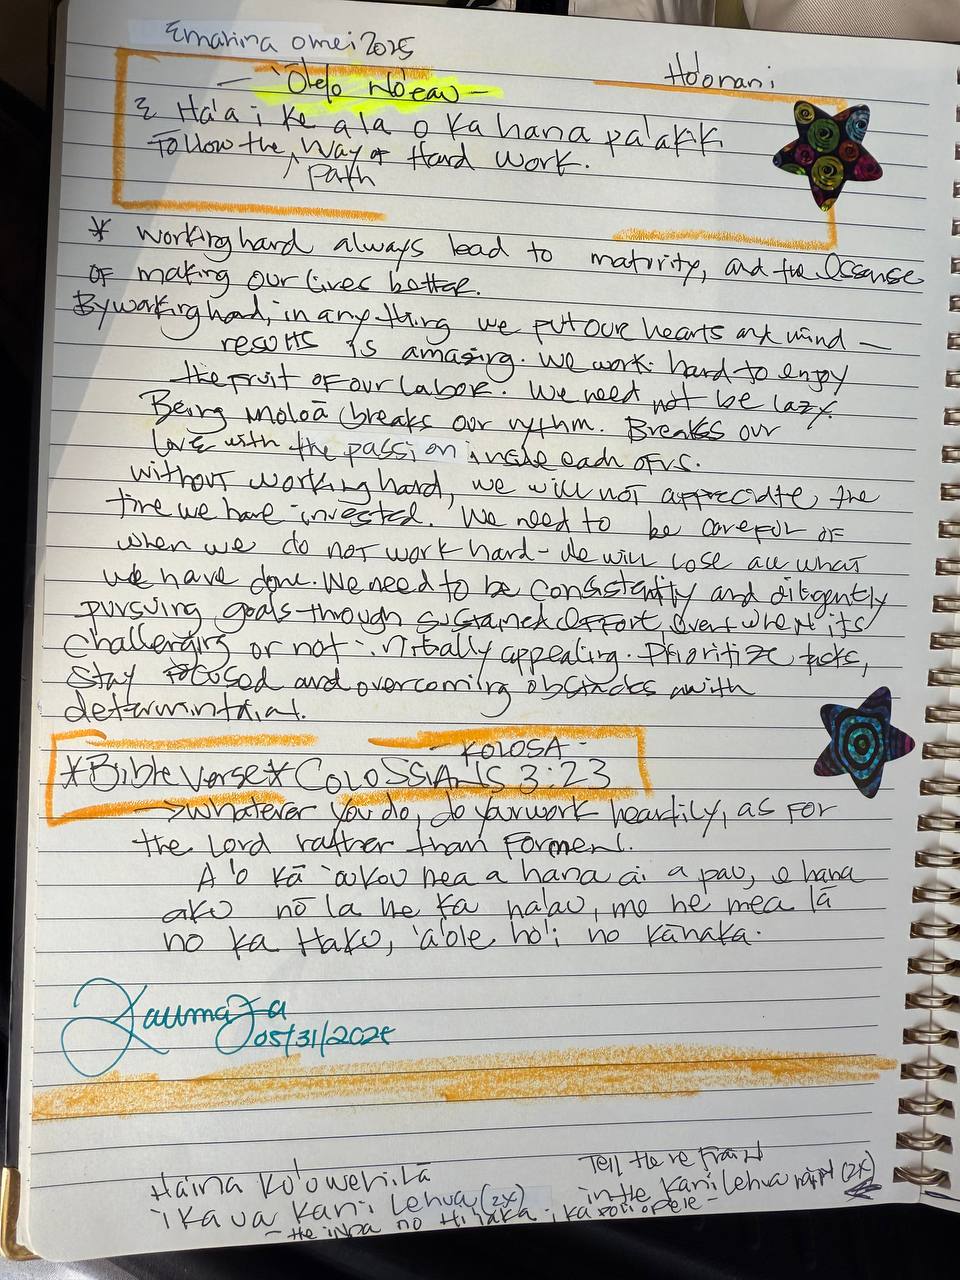 Emarina omei 2025
Ho'onani
— 'Ōlelo No'eau —
E Ha'a i ke ala o ka hana pa'akk
Follow the Way of Hard work.
Path
* Working hard always lead to maturity, and the essense
of making our lives better.
By working hard, in any-thing we put our hearts and mind —
results is amazing. We work hard to enjoy
the fruit of our Labor. We need not be lazy.
Being moloā breaks our rythm. Breaks our
love with the passion inside each of us.
without working hard, we will not appreciate the
time we have invested. We need to be careful or
when we do not work hard - we will lose all what
we have done. We need to be consistently and diligently
pursuing goals through sustained effort even when its
challenging or not initially appealing. Prioritize tasks,
stay focused and overcoming obstacles with
- KOLOSA -
*Bible Verse* COLOSSIANS 3:23
→ Whatever you do, do your work heartily, as for
the Lord rather than for men.
A 'o kā 'oukou mea a hana ai a pau, e hana
aku nō la me ka na'au, me he mea lā
no ka Haku, 'a'ole ho'i no kānaka.
05/31/2025
Haina Ko'oweiilā
Tell the refrain
'i ka ua Kani Lehua (2x)
in the Kani Lehua (2x)
- He inoa no Hi'iaka i ka poli o Pele -